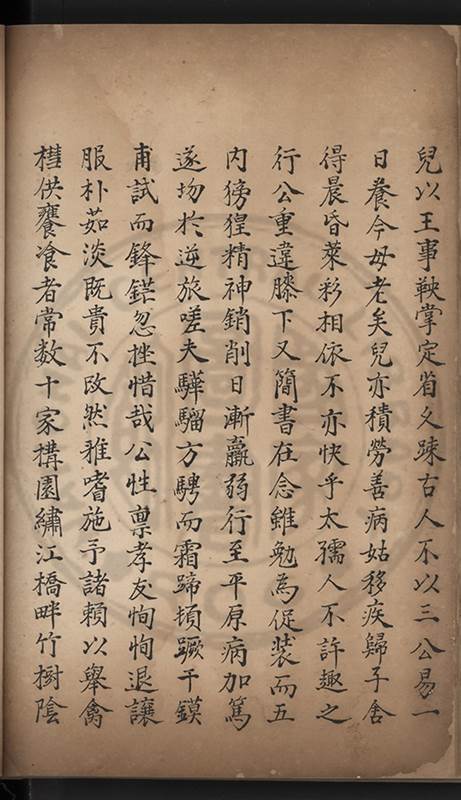 兒以王事鞅掌定省久踈古人不以三公易一
日養今母老矣兒亦積勞善病姑移疾歸子舍
得晨昏萊彩相依不亦快乎太孺人不許趣之
行公重違膝下又簡書在念雖勉為促裝而五
内徬徨精神銷削日漸羸弱行至平原病加篤
遂歾於逆旅嗟夫驊騮方騁而霜蹄頓蹶干鏌
甫試而鋒鋩忽挫惜哉公性禀孝友恂恂退讓
服朴茹淡既貴不改然雅嗜施予諸賴以舉禽
槥供饔飡者常数十家構園繡江橋畔竹樹陰